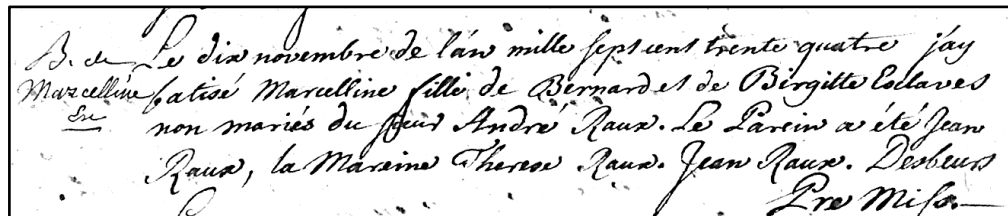 B. de
Marcelline
Le dix novembre de l'an mille sept cent trente quatre jay
batisé Marcelline fille de Bernard et de Birgitte Esclaves
non mariés du sieur André Raux. Le Parein a été Jean
Raux, la Mareine Therese Raux. Jean Raux. Desbeurs
Pre Miss.